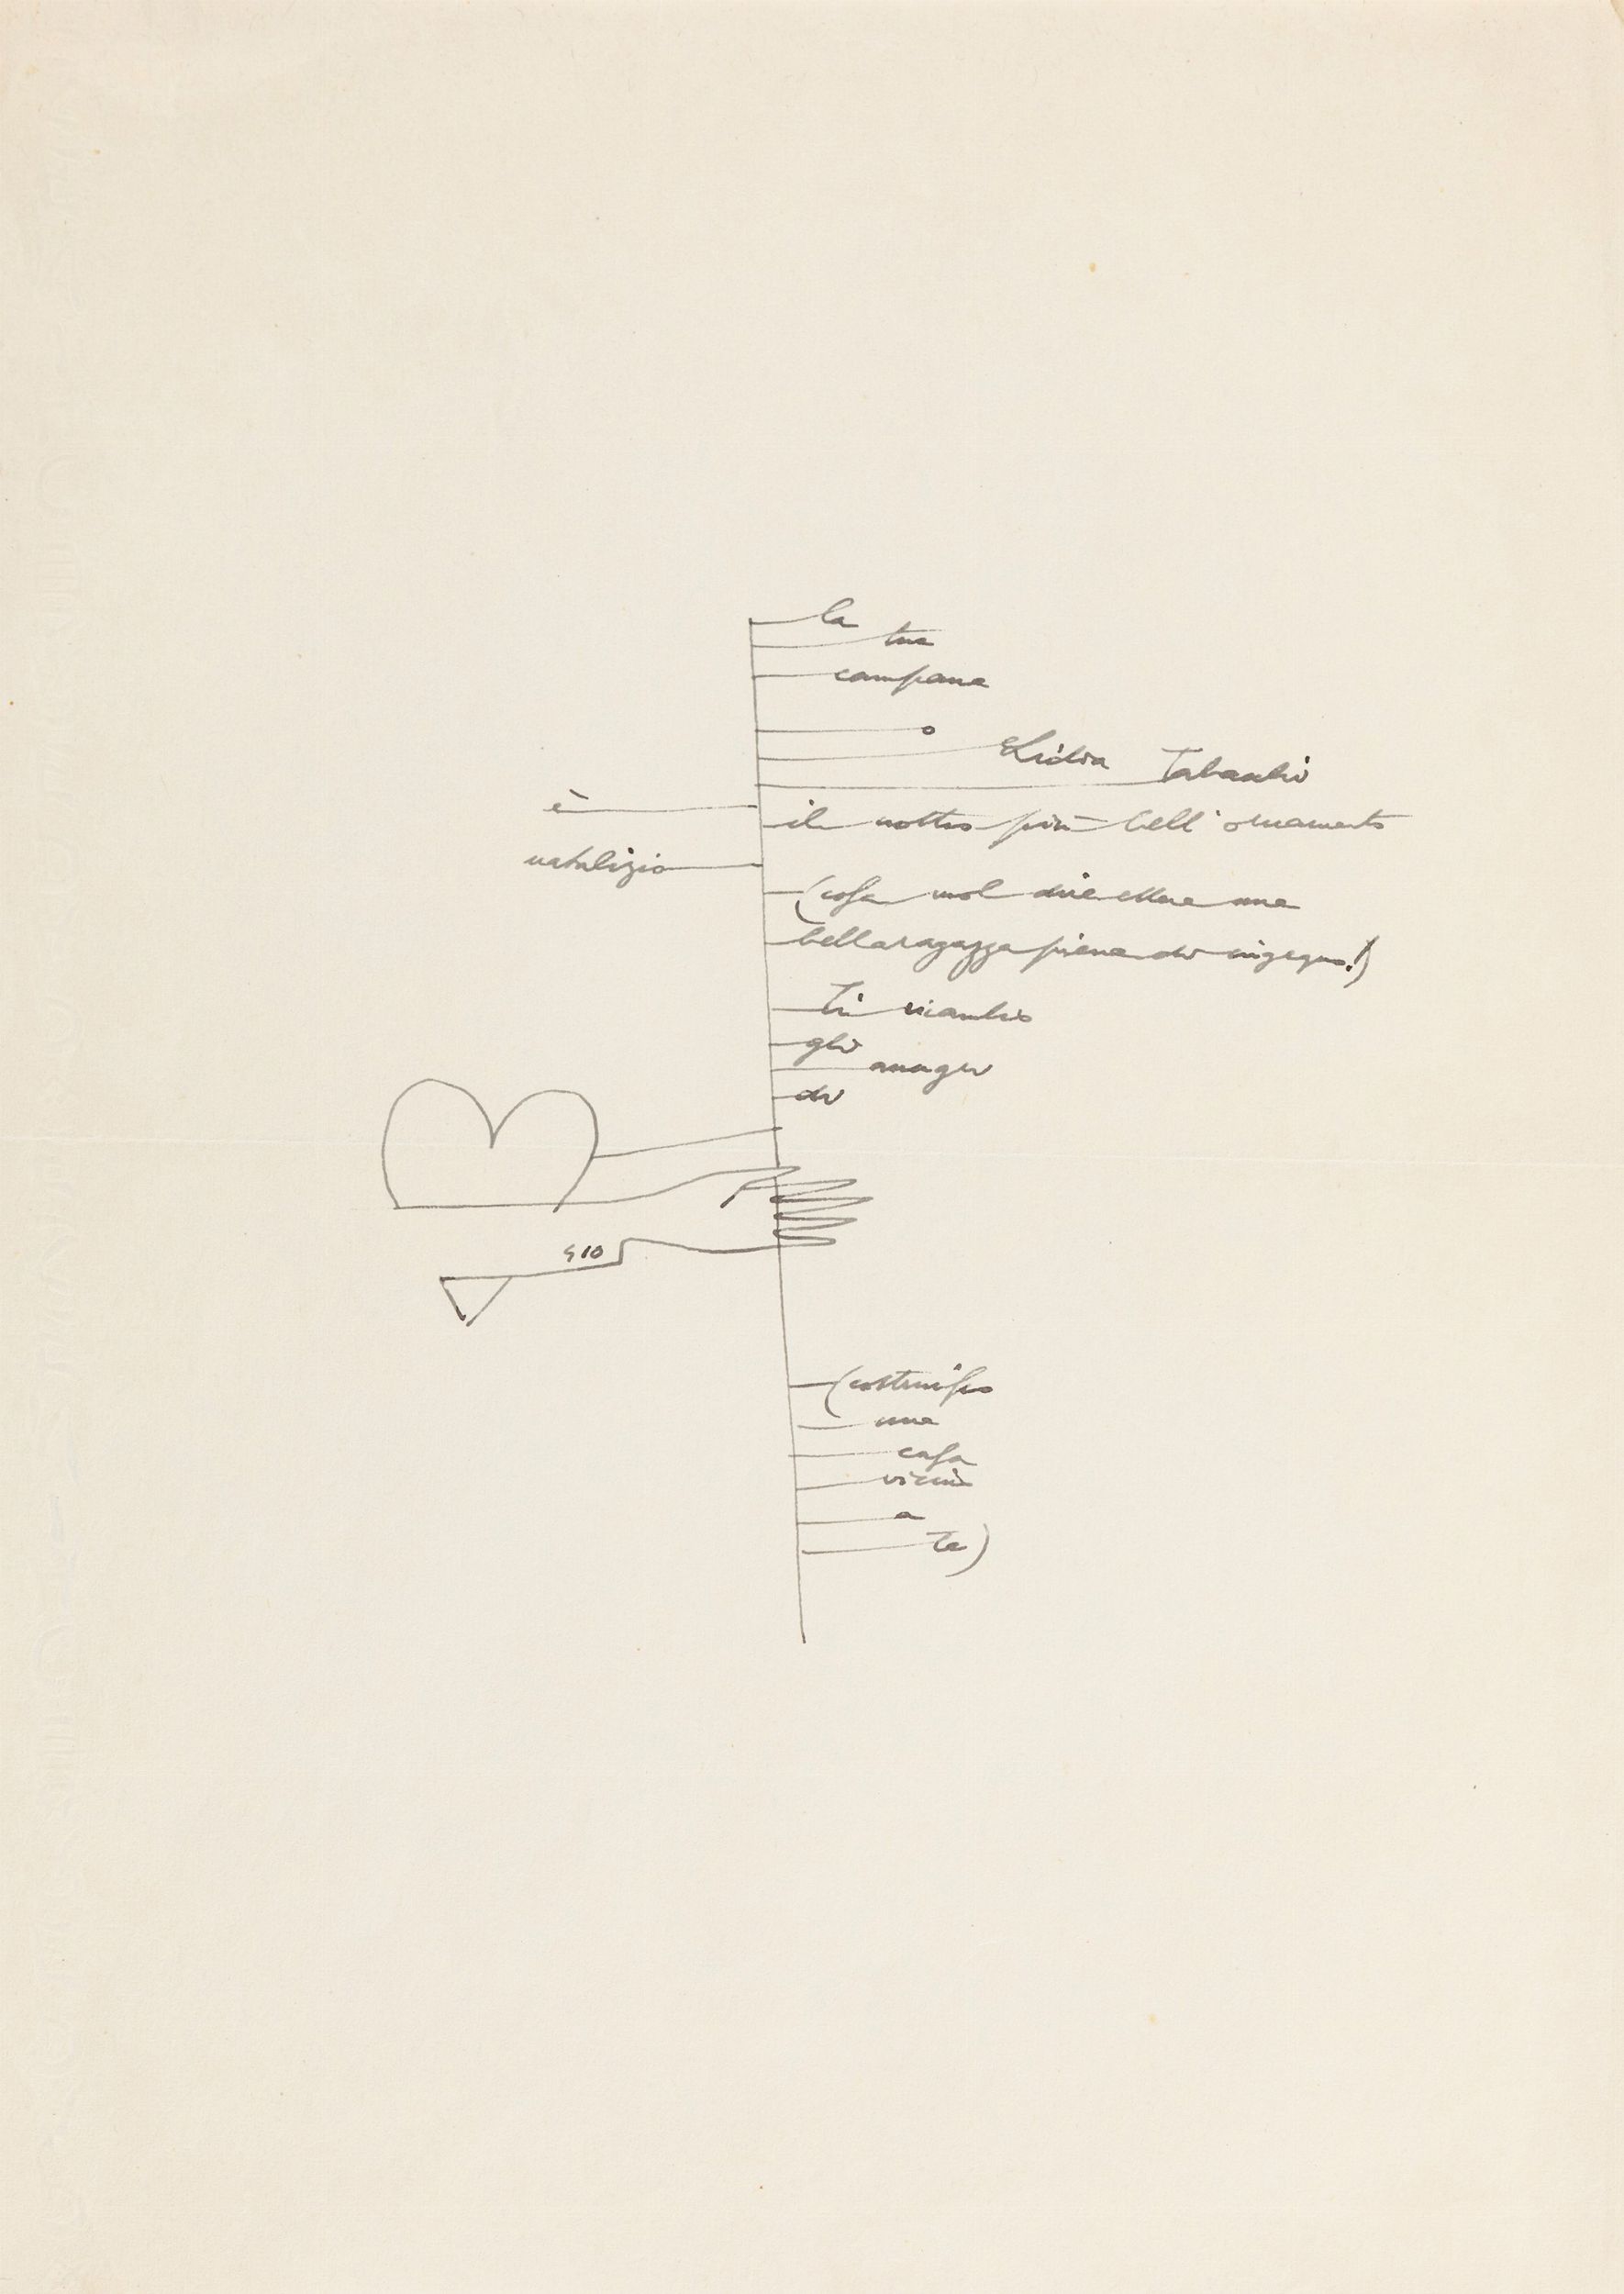 la
tua
campana
o
Lidia Tabacchi
è
il nostro più bell'ornamento
natalizio
(cosa vuol dire essere una
bella ragazza piena di ingegno!)
Ti ricambio
gli
auguri
di
GIO
(costruisco
una
casa
vicin
a
Te)